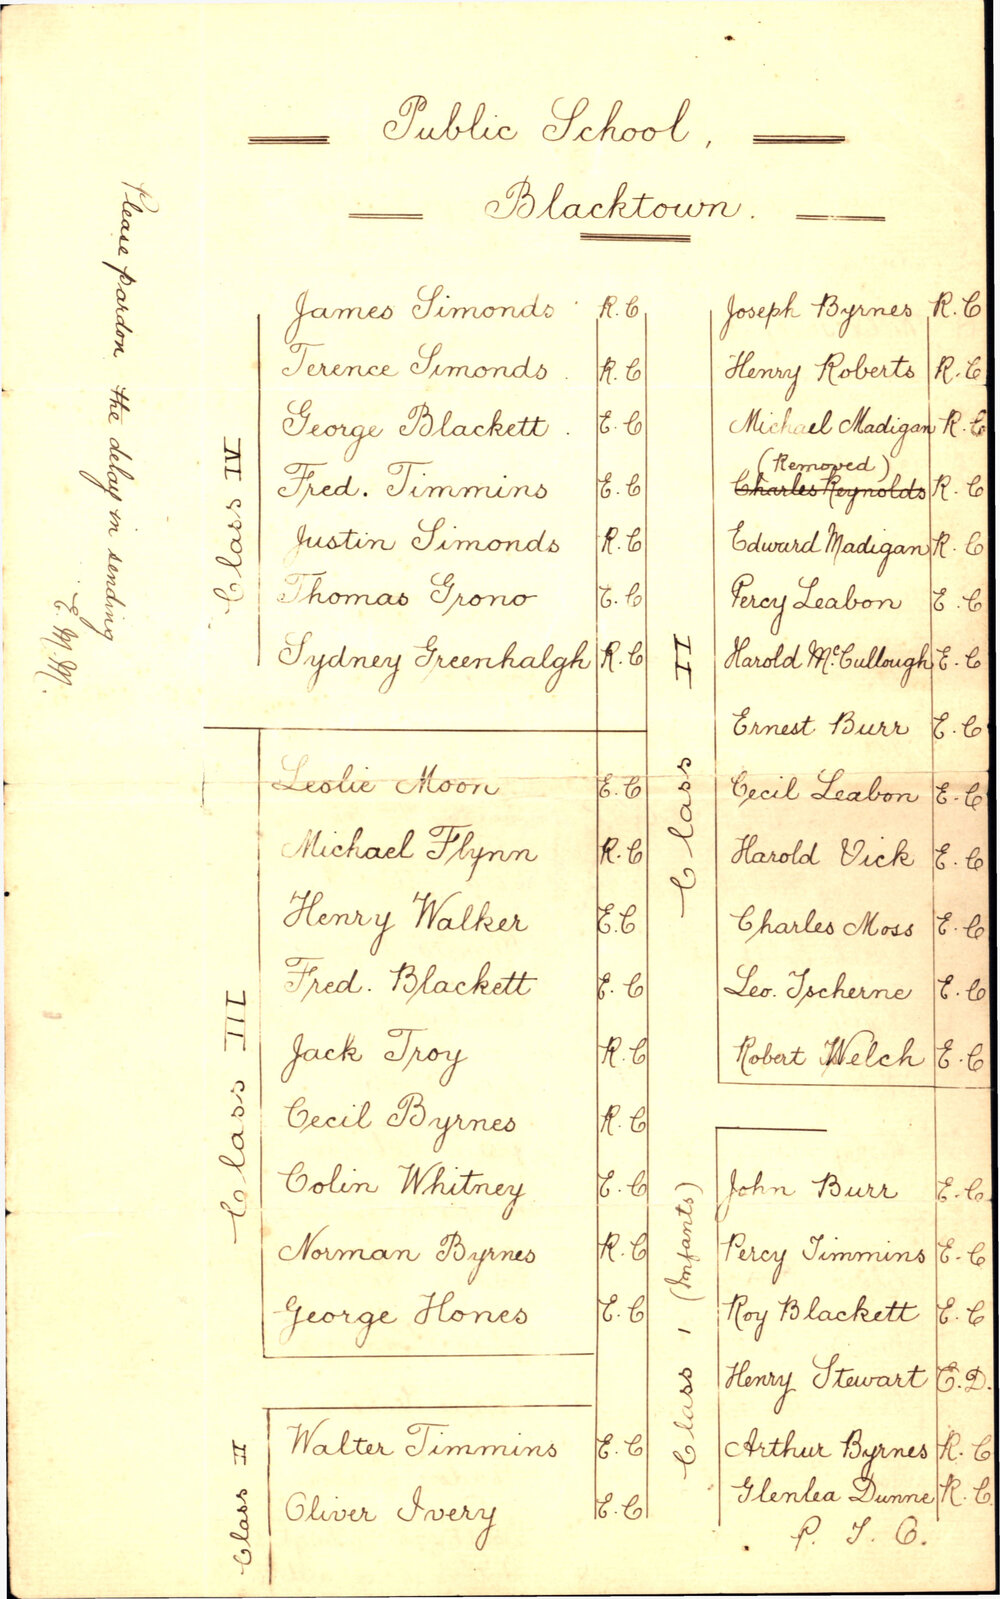 Public School,
Blacktown.
Please pardon the delay in sending
E. M. M.
Class IV
James Simonds R.C
Terence Simonds. R.C
George Blackett. E.C
Fred. Timmins E.C
Justin Simonds R.C
Thomas Grono E.C
Sydney Greenhalgh R.C
Class III
Leslie Moon E.C
Michael Flynn R.C
Henry Walker E.C
Fred. Blackett E.C
Jack Troy R.C
Cecil Byrnes R.C
Colin Whitney E.C
Norman Byrnes R.C
George Hones E.C
Class II
Walter Timmins E.C
Oliver Ivery E.C
Class II
Joseph Byrnes R.C
Henry Roberts R.C
Michael Madigan R.C
(Removed)
Charles Reynolds R.C
Edward Madigan R.C
Percy Leabon E.C
Harold McCullough E.C
Ernest Burr E.C
Cecil Leabon E.C
Harold Vick E.C
Charles Moss E.C
Leo. Tscherne E.C
Robert Welch E.C
Class 1 (Infants)
John Burr E.C
Percy Timmins E.C
Roy Blackett E.C
Henry Stewart C.D.
Arthur Byrnes R.C
Glenlea Dunne R.C
P. T. O.